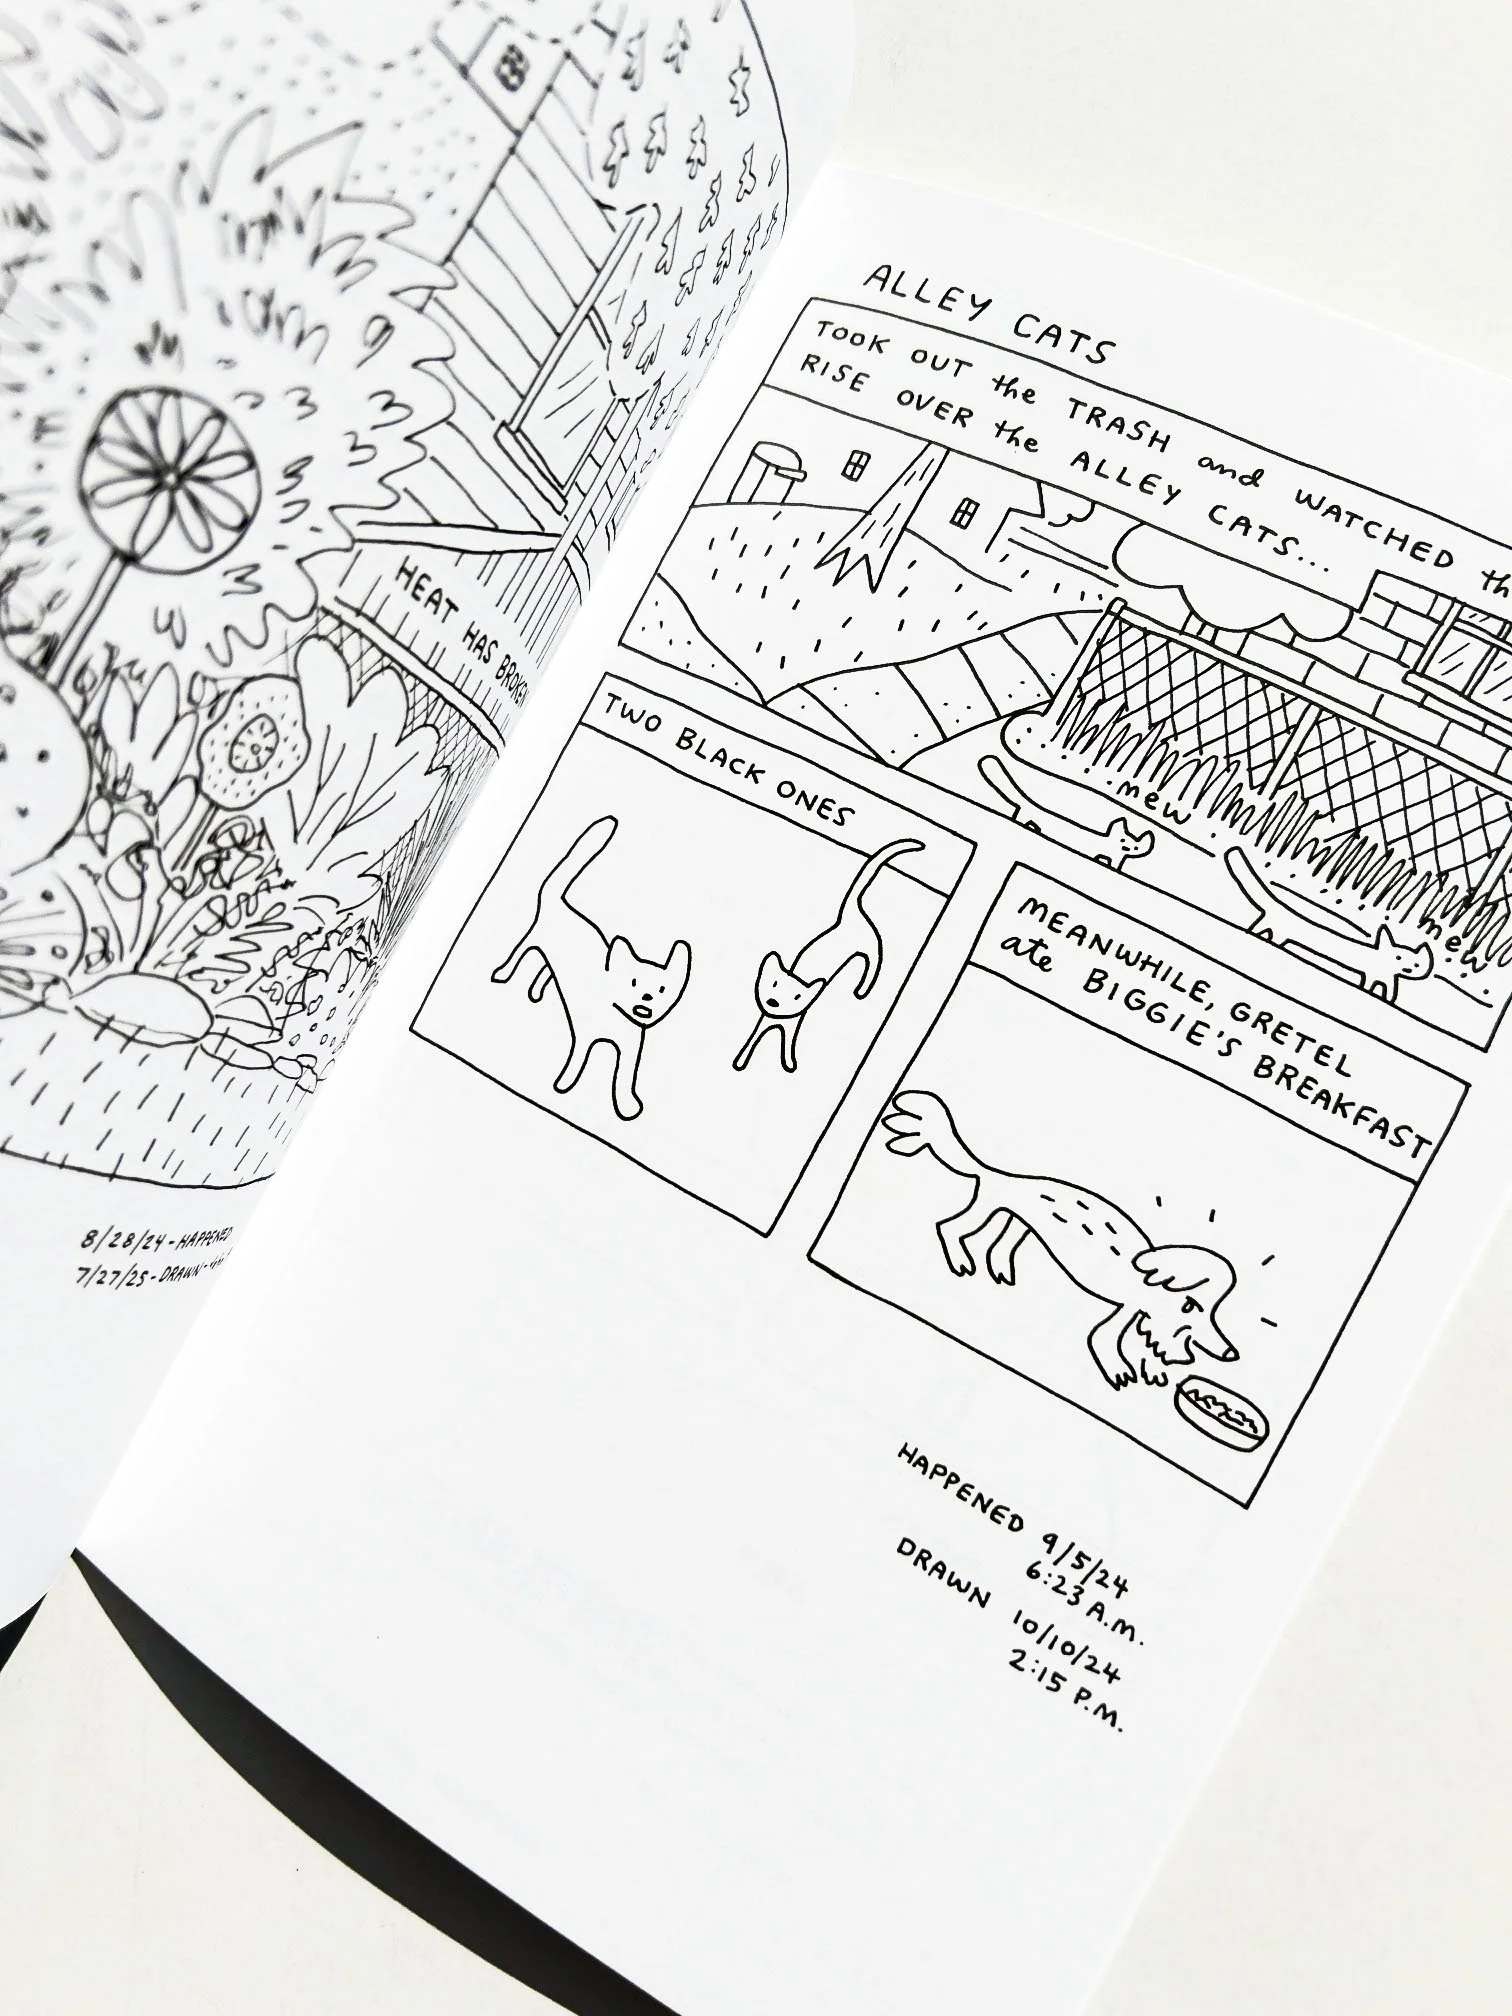 HEAT HAS BROKEN
8/28/24 - HAPPENED
7/27/25 - DRAWN -
ALLEY CATS
TOOK OUT the TRASH and WATCHED
RISE OVER the ALLEY CATS...
mew
mew
TWO BLACK ONES
MEANWHILE, GRETEL
ate BIGGIE'S BREAKFAST
HAPPENED 9/5/24
6:23 A.M.
DRAWN 10/10/24
2:15 P.M.